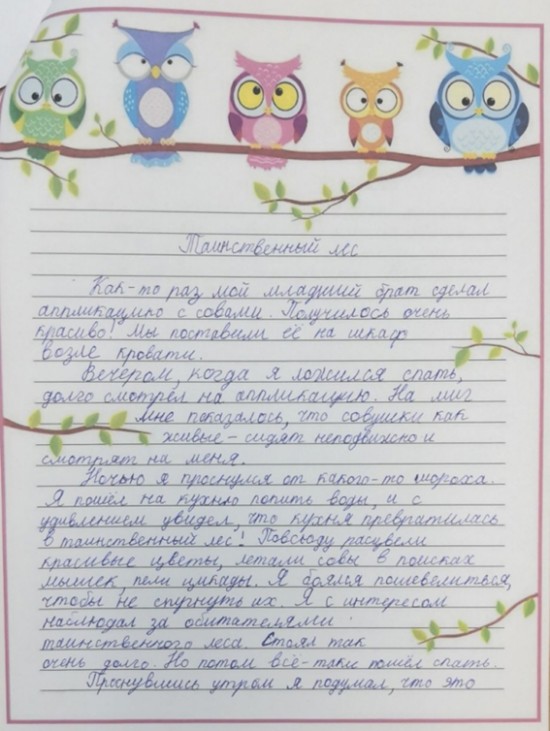 Таинственный лес
Как-то раз мой младший брат сделал
аппликацию с совами. Получилось очень
красиво! Мы поставили её на шкаф
возле кровати.
Вечером, когда я ложился спать,
долго смотрел на аппликацию. На миг
мне показалось, что совушки как
живые - сидят неподвижно и
смотрят на меня.
Ночью я проснулся от какого-то шороха.
Я пошёл на кухню попить воды, и с
удивлением увидел, что кухня превратилась
в таинственный лес! Повсюду расцвели
красивые цветы, летали совы в поисках
мышек, пели цикады. Я боялся пошевелиться,
чтобы не спугнуть их. Я с интересом
наблюдал за обитателями
таинственного леса. Стоял так
очень долго. Но потом всё-таки пошёл спать.
Проснувшись утром я подумал, что это